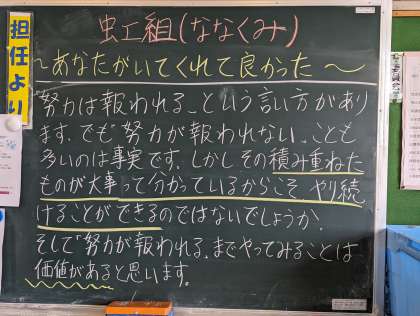 担任より
虹組(ななくみ)
～あなたがいてくれて良かった～
「努力は報われる」という言い方があり
ます。でも「努力が報われない」ことも
多いのは事実です。しかしその積み重ねた
ものが大事って分かっているからこそ、やり続
けることができるのではないでしょうか。
そして「努力が報われる」までやってみることは
価値があると思います。